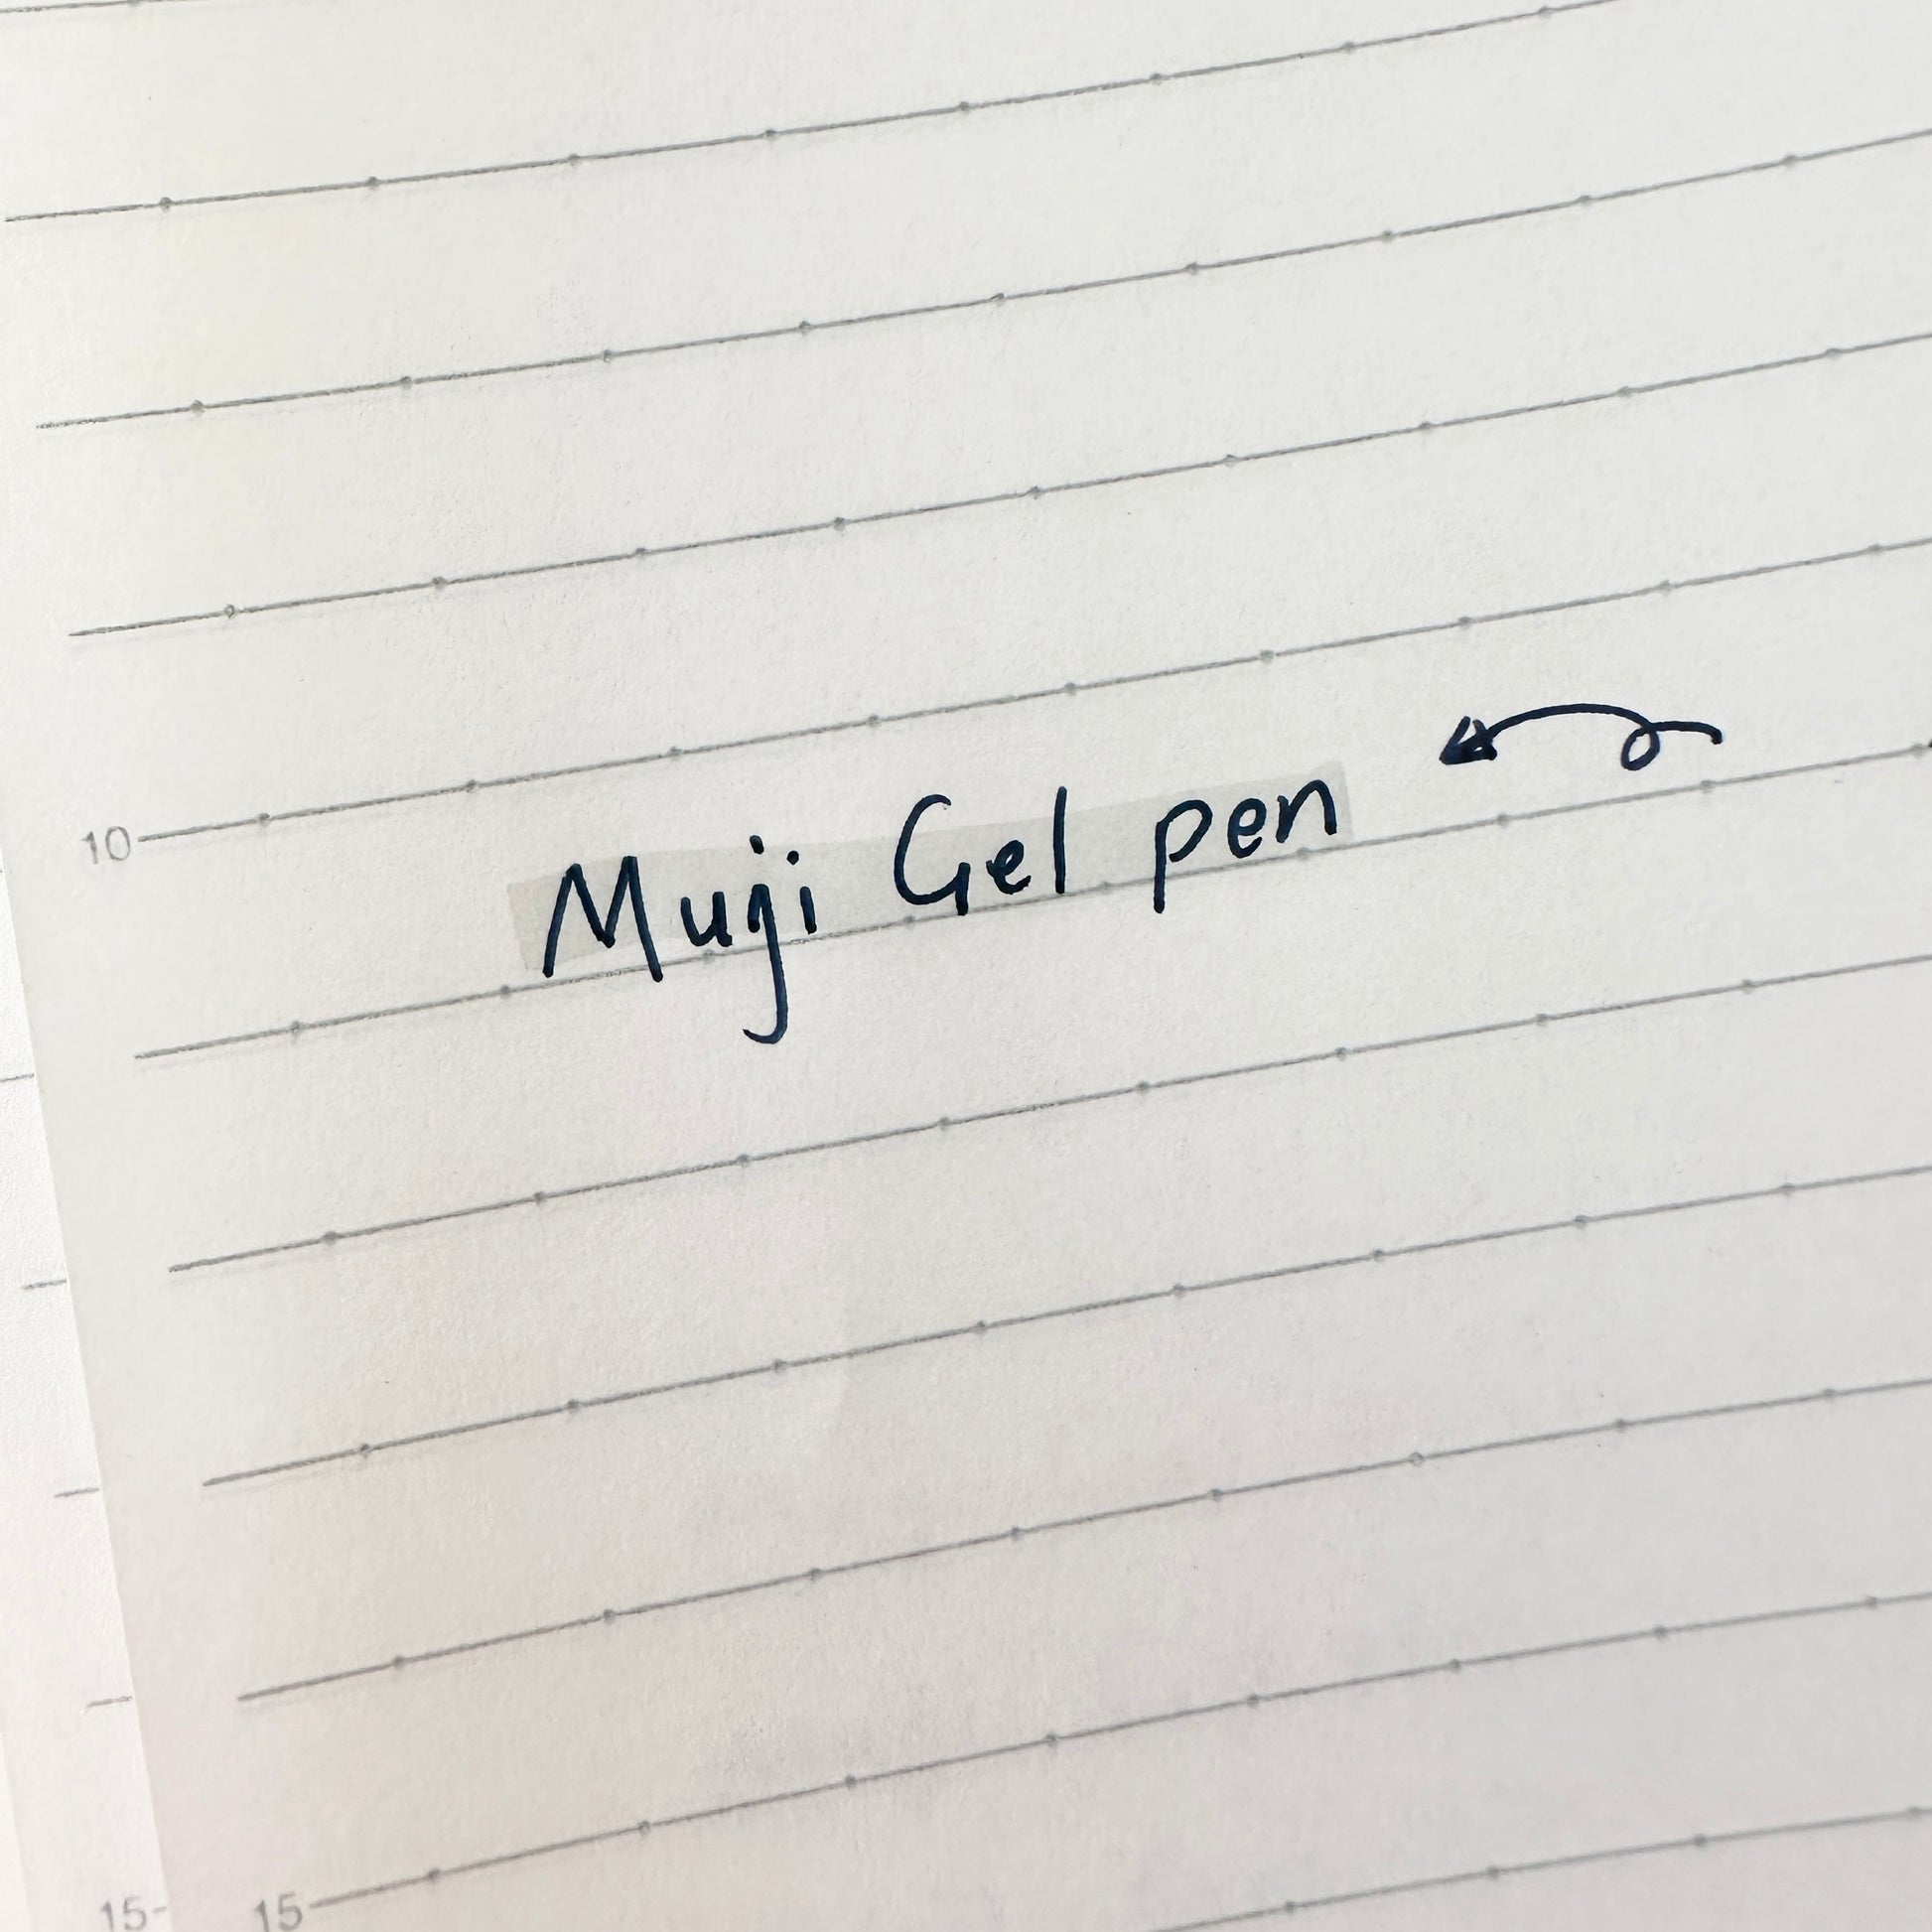 10
Muji Gel pen
15- 15